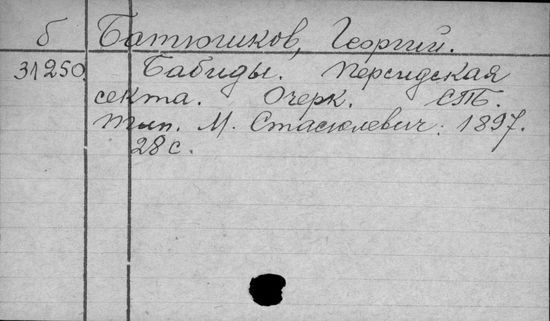 б Батюшков, Георгий.
31250. Бабиды. Персидская
секта. Очерк. СПБ.
Тип. М. Стасюлевич. 1897.
28 с.